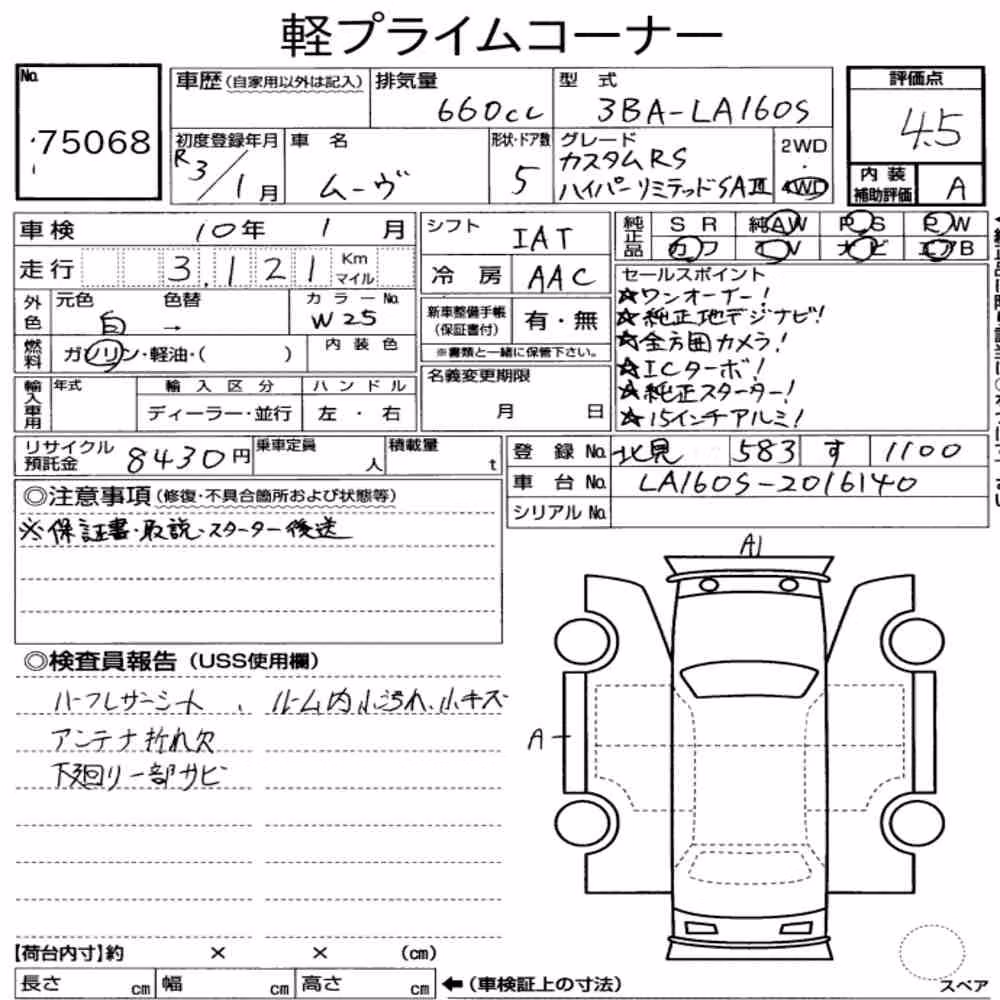 軽プライムコーナー
No. 75068
車歴(自家用以外は記入)
排気量 660cc
型式 3BA-LA160S
評価点 4.5
初度登録年月 R3/1月
車名 ムーヴ
形状・ドア数 5
グレード カスタムRS
ハイパーリミテッドSAⅢ
2WD・4WD
内装補助評価 A
車検 10年 1月
シフト IAT
純正品 SR 純AW PS PW
カワ TV ナビ エアB
走行 3,121 Km マイル
冷房 AAC
外色 元色 白 → 色替
カラーNo. W25
新車整備手帳(保証書付) 有・無
※書類と一緒に保管下さい。
燃料 ガソリン・軽油・( )
内装色
セールスポイント
☆ワンオーナー!
☆純正地デジナビ!
☆全方囲カメラ!
☆ICターボ!
☆純正スターター!
☆15インチアルミ!
輸入車用 年式 輸入区分 ディーラー・並行 ハンドル 左・右
名義変更期限 月 日
リサイクル預託金 8430円
乗車定員 人
積載量 t
登録No. 北見 583 す 1100
車台No. LA160S-2016140
シリアルNo.
◎注意事項(修復・不具合箇所および状態等)
※保証書・取説・スターター後送
◎検査員報告(USS使用欄)
ハーフレザーシート、ルーム内小汚れ、小キズ
アンテナ折れ欠
下廻り一部サビ
A1
A
【荷台内寸】約 × × (cm)
長さ cm 幅 cm 高さ cm ←(車検証上の寸法)
スペア